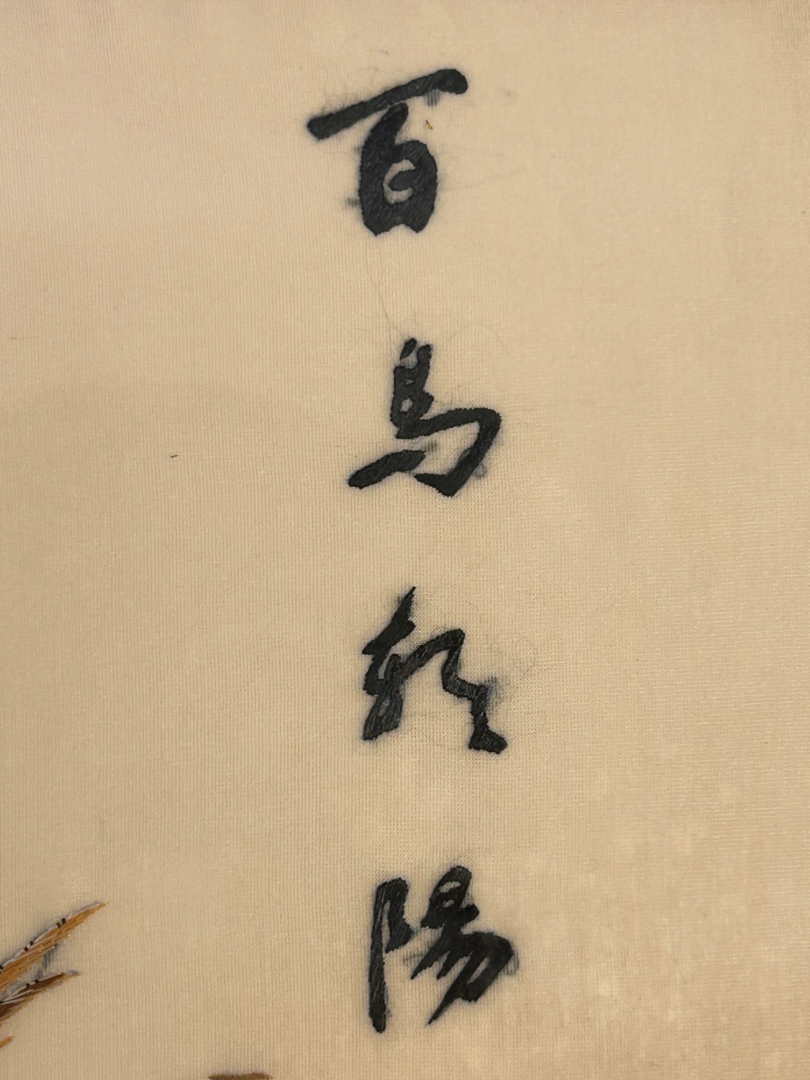 百鳥朝陽